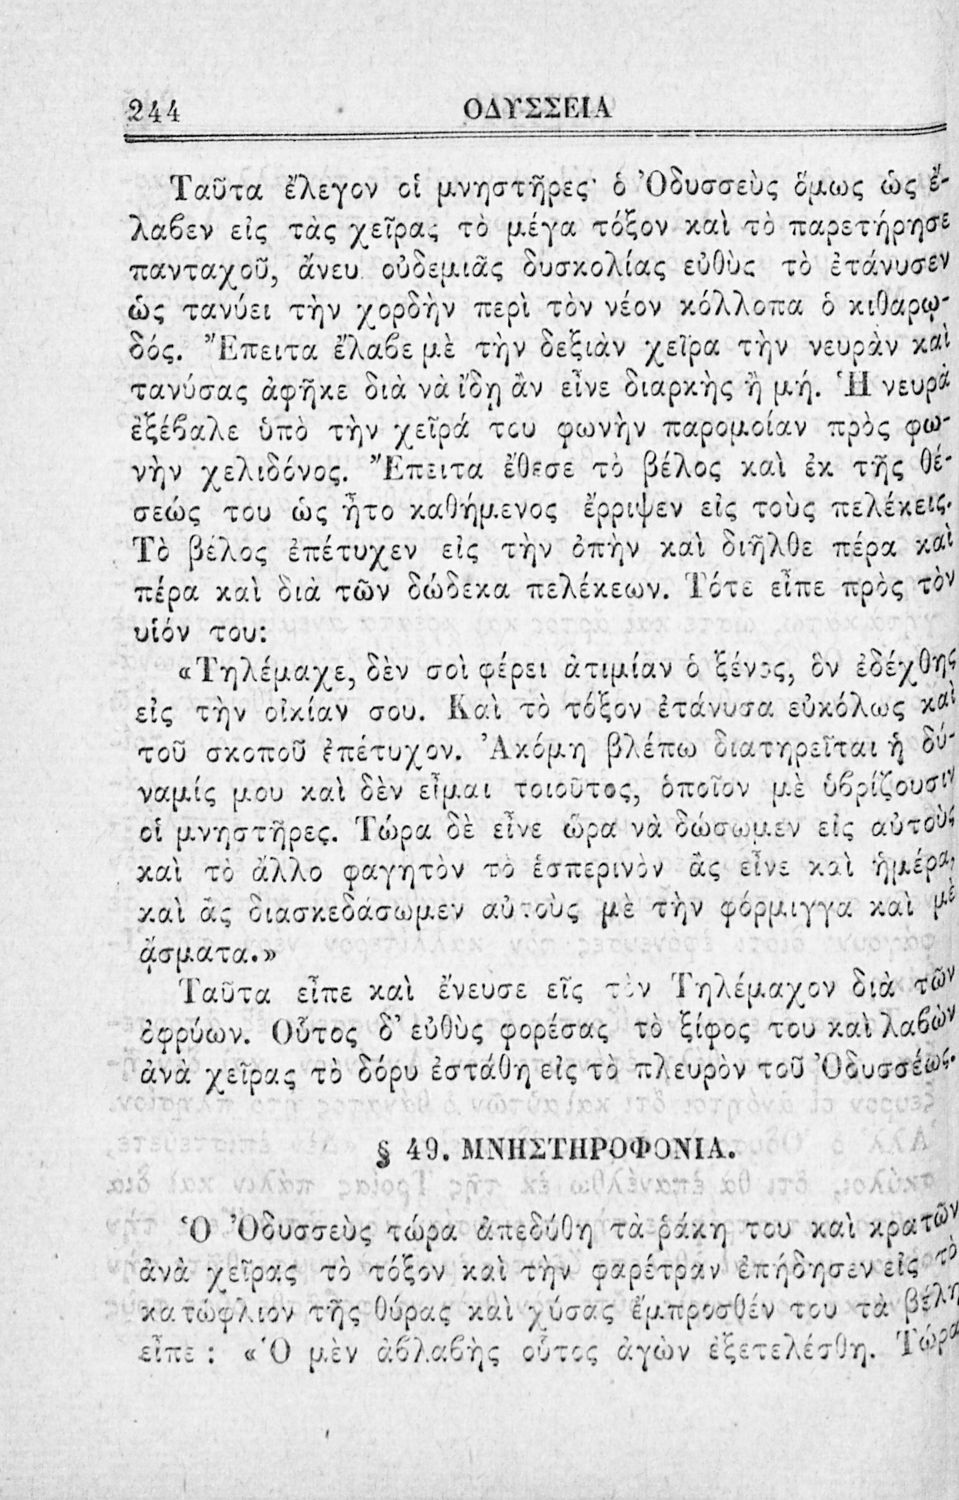 244
ΟΔΥΣΣΕΙΑ
Ταῦτα ἔλεγον οἱ μνηστῆρες· ὁ Ὀδυσσεὺς ὅμως ὡς ἔ-
λαβεν εἰς τὰς χεῖρας τὸ μέγα τόξον καὶ τὸ παρετήρησε
πανταχοῦ, ἄνευ οὐδεμιᾶς δυσκολίας εὐθὺς τὸ ἐτάνυσεν
ὡς τανύει τὴν χορδὴν περὶ τὸν νέον κόλλοπα ὁ κιθαρῳ-
δός. Ἔπειτα ἔλαβε μὲ τὴν δεξιὰν χεῖρα τὴν νευρὰν καὶ
τανύσας ἀφῆκε διὰ νὰ ἴδῃ ἂν εἶνε διαρκὴς ἢ μή. Ἡ νευρὰ
ἐξέβαλε ὑπὸ τὴν χεῖρά του φωνὴν παρομοίαν πρὸς φω-
νὴν χελιδόνος. Ἔπειτα ἔθεσε τὸ βέλος καὶ ἐκ τῆς θέ-
σεώς του ὡς ἦτο καθήμενος ἔρριψεν εἰς τοὺς πελέκεις.
Τὸ βέλος ἐπέτυχεν εἰς τὴν ὀπὴν καὶ διῆλθε πέρα καὶ
πέρα καὶ διὰ τῶν δώδεκα πελέκεων. Τότε εἶπε πρὸς τὸν
υἱόν του:
«Τηλέμαχε, δὲν σοὶ φέρει ἀτιμίαν ὁ ξένος, ὃν ἐδέχθης
εἰς τὴν οἰκίαν σου. Καὶ τὸ τόξον ἐτάνυσα εὐκόλως καὶ
τοῦ σκοποῦ ἐπέτυχον. Ἀκόμη βλέπω διατηρεῖται ἡ δύ-
ναμίς μου καὶ δὲν εἶμαι τοιοῦτος, ὁποῖον μὲ ὑβρίζουσιν
οἱ μνηστῆρες. Τώρα δὲ εἶνε ὥρα νὰ δώσωμεν εἰς αὐτοὺς
καὶ τὸ ἄλλο φαγητὸν τὸ ἑσπερινὸν ἂς εἶνε καὶ ἡμέρα,
καὶ ἂς διασκεδάσωμεν αὐτοὺς μὲ τὴν φόρμιγγα καὶ μὲ
ᾄσματα.»
Ταῦτα εἶπε καὶ ἔνευσε εἲς τὸν Τηλέμαχον διὰ τῶν
ὀφρύων. Οὗτος δ' εὐθὺς φορέσας τὸ ξίφος του καὶ λαβὼν
ἀνὰ χεῖρας τὸ δόρυ ἐστάθη εἰς τὸ πλευρὸν τοῦ Ὀδυσσέως.
§ 49. ΜΝΗΣΤΗΡΟΦΟΝΙΑ.
Ὁ Ὀδυσσεὺς τώρα ἀπεδύθη τὰ ῥάκη του καὶ κρατῶν
ἀνὰ χεῖρας τὸ τόξον καὶ τὴν φαρέτραν ἐπήδησεν εἰς τὸ
κατώφλιον τῆς θύρας καὶ χύσας ἔμπροσθέν του τὰ βέλη
εἶπε : «Ὁ μὲν ἀβλαβὴς οὗτος ἀγὼν ἐξετελέσθη. Τώρα